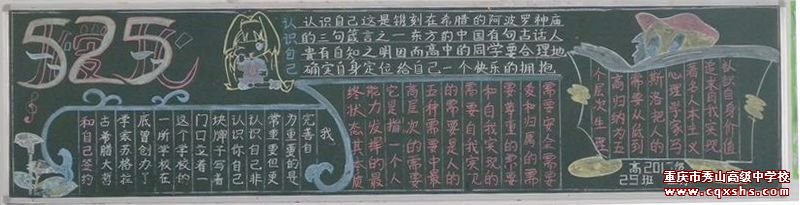 525
认识自己
认识自己这是镌刻在希腊的阿波罗神庙
的三句箴言之一东方的中国有句古话人
贵有自知之明因而高中的同学要合理地
确定自身定位给自己一个快乐的拥抱
和自己签约
古希腊大哲
学家苏格拉
底曾创办了
一所学校在
这个学校的
门口立着一
块牌子写着
认识你自己
认识自己非
常重要但更
为重要的是
完善自
我
认识自身价值
追求自我实现
著名人本主义
心理学家马
斯洛把人的
需要从低到
高归纳为五
个层次生理
需要安全需要
爱和归属的需
要尊重的需要
和自我实现的
需要自我实现
的需要是人的
五种需要中最
高层次的需要
它是指一个人
能力发挥的最
终状态其本质
高2015级
25班
重庆市秀山高级中学校
www.cqxshs.com